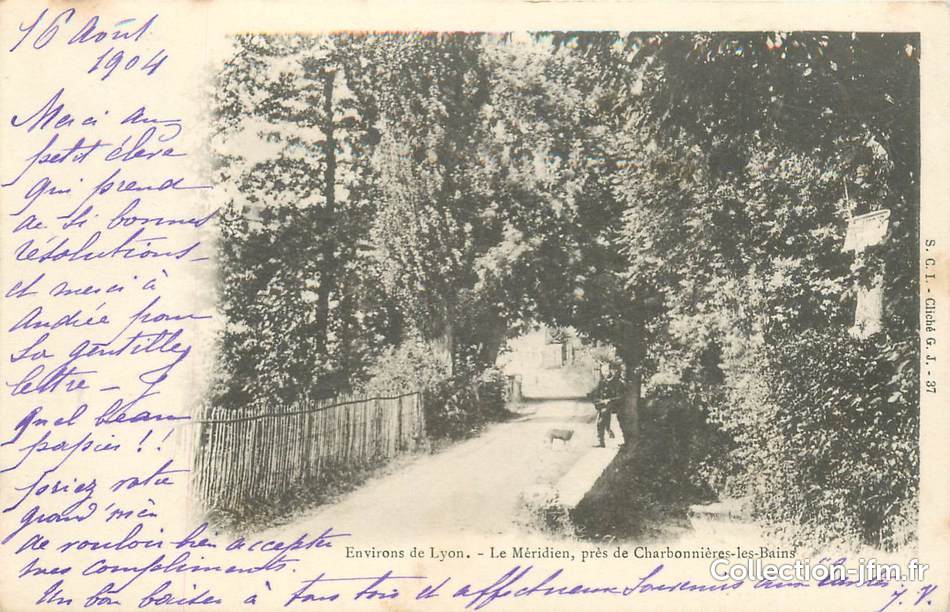 16 Août
1904
Merci au
petit élève
qui prend
de si bonnes
résolutions -
et merci à
Andrée pour
sa gentille
lettre -
quel beau
papier !!
priez votre
grand'mère
de vouloir bien accepter
mes compliments.
Un bon baiser à tous trois et affectueux souvenirs aux
J. V.
Environs de Lyon. - Le Méridien, près de Charbonnières-les-Bains
S. C. I. - Cliché G. J. - 37
Collection-jfm.fr